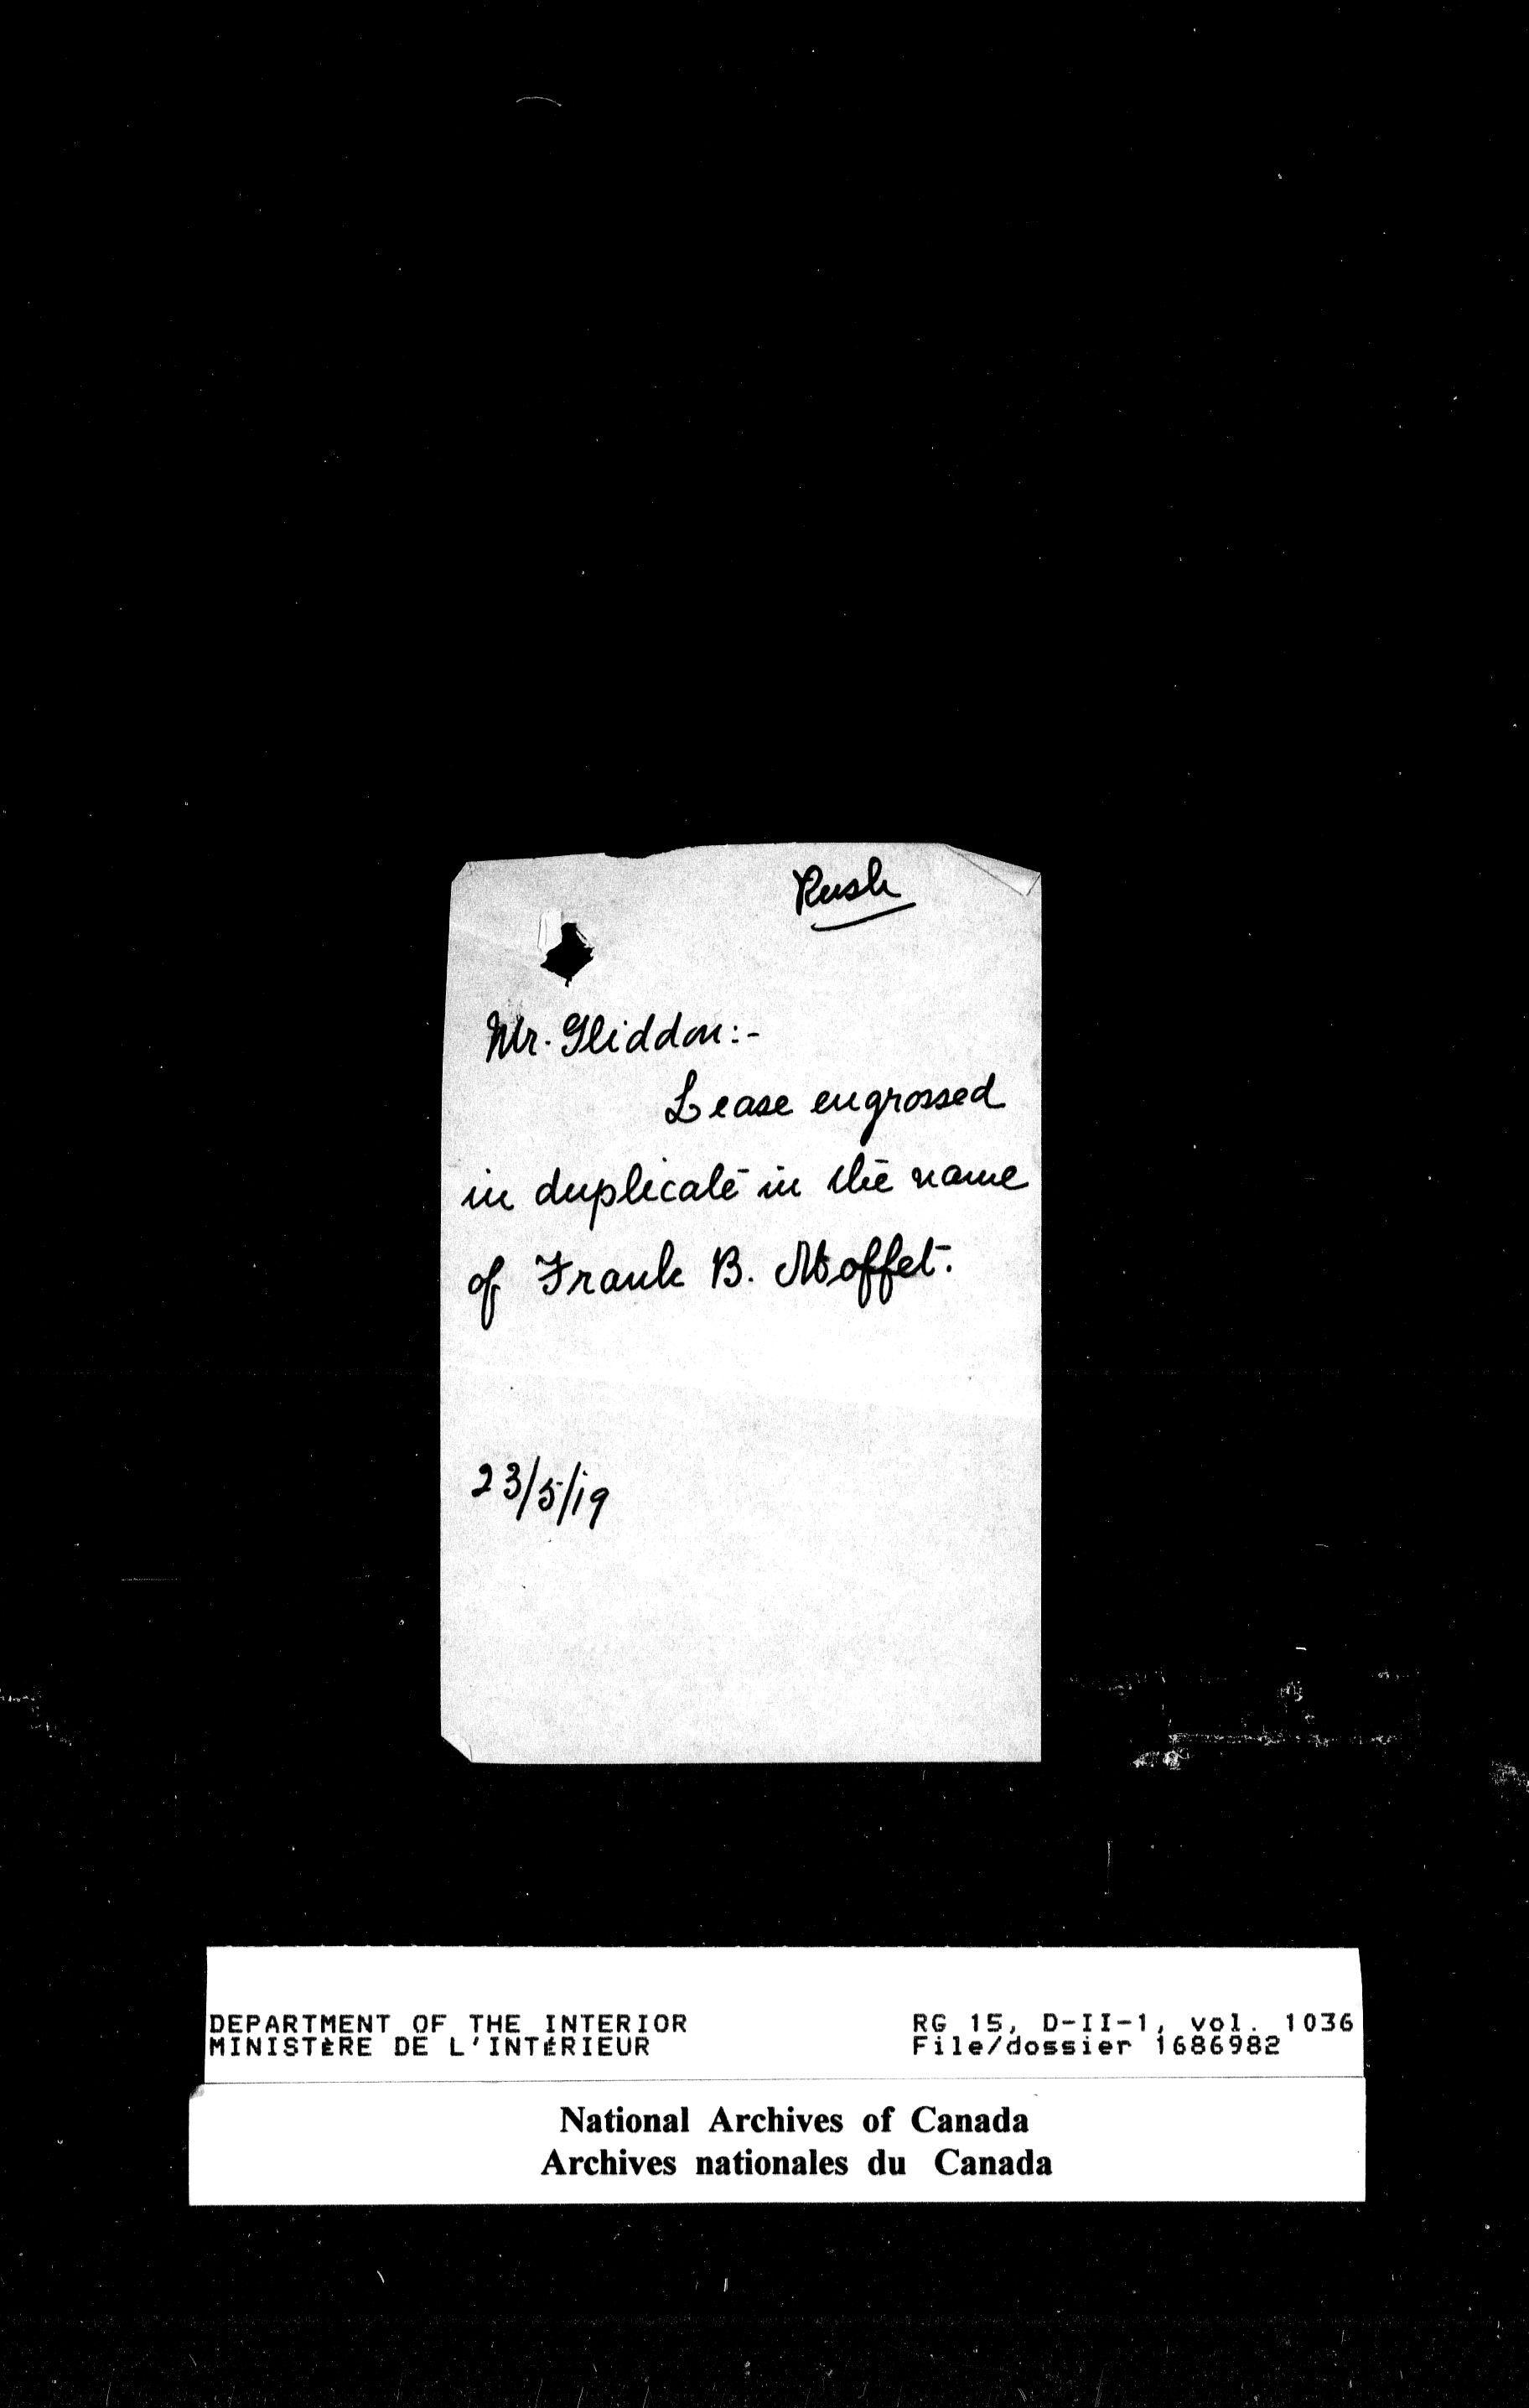 Rush
Mr. Gliddon:-
Lease engrossed
in duplicate in the name
of Frank B. Moffet.
23/5/19
DEPARTMENT OF THE INTERIOR RG 15, D-II-1, vol. 1036
MINISTÈRE DE L'INTÉRIEUR File/dossier 1686982
National Archives of Canada
Archives nationales du Canada